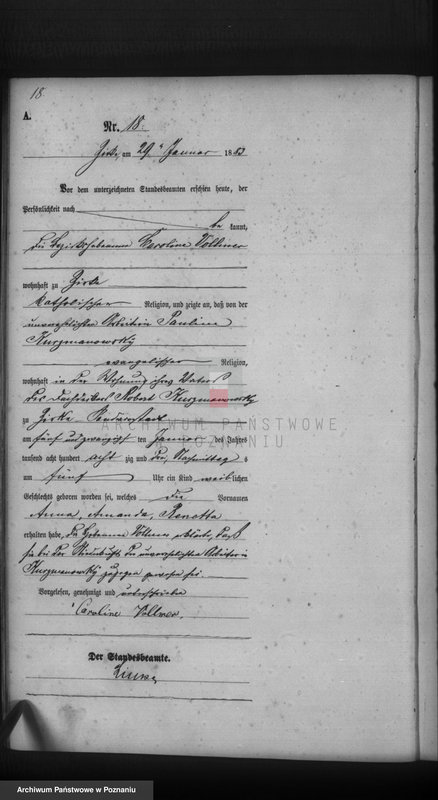 18
A.
Nr. 18.
Zirke, am 29ten Januar 1883
Vor dem unterzeichneten Standesbeamten erschien heute, der
Persönlichkeit nach
be kannt,
die Bezirkshebamme Caroline Vollmer
wohnhaft zu Zirke
katholischer Religion, und zeigte an, daß von der
unverehelichten Arbeiterin Pauline
Kurzmanowsky
evangelischer Religion,
wohnhaft in der Wohnung ihres Vaters
des Robert Kurzmanowsky
zu Zirke
am fünf und zwanzigsten Januar des Jahres
tausend acht hundert acht zig und drei, Nachmittag s
um fünf Uhr ein Kind weiblichen
Geschlechts geboren worden sei, welches die Vornamen
Anna, Amanda, Renetta
erhalten habe, die Hebamme Vollmer erklärte, daß
sie bei der Niederkunft der unverehelichten Arbeiterin
Kurzmanowsky zugegen gewesen sei.
Vorgelesen, genehmigt und unterschrieben
Caroline Vollmer.
Der Standesbeamte.
ARCHIWUM PAŃSTWOWE
W POZNANIU
Archiwum Państwowe w Poznaniu